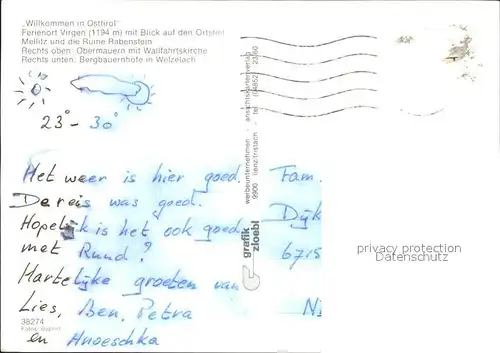 „Willkommen in Osttirol"
Ferienort Virgen (1194 m) mit Blick auf den Ortsteil
Mellitz und die Ruine Rabenstein
Rechts oben: Obermauern mit Wallfahrtskirche
Rechts unten: Bergbauernhöfe in Welzelach
23° - 30°
Het weer is hier goed.
De reis was goed.
Hopelijk is het ook goed
met Ruud?
Hartelijke groeten van
Lies, Ben, Petra
en Anoeschka
38274
Fotos:
werbeunternehmen - ansichtskartenverlag
9900 lienz/tristach - tel. (04852)
grafik
zloebl
Fam.
Dijk
6715
privacy protection
Datenschutz